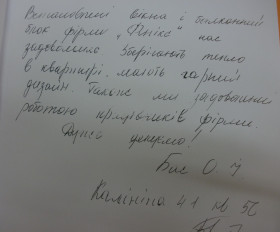 Встановлені вікна і балконний
блок фірми „Фенікс" нас
задовольнило. Зберігають тепло
в квартирі, мають гарний
дизайн. Також ми задоволені
роботою працівників фірми.
Дуже дякуємо!
Бас О.
Калініна 41